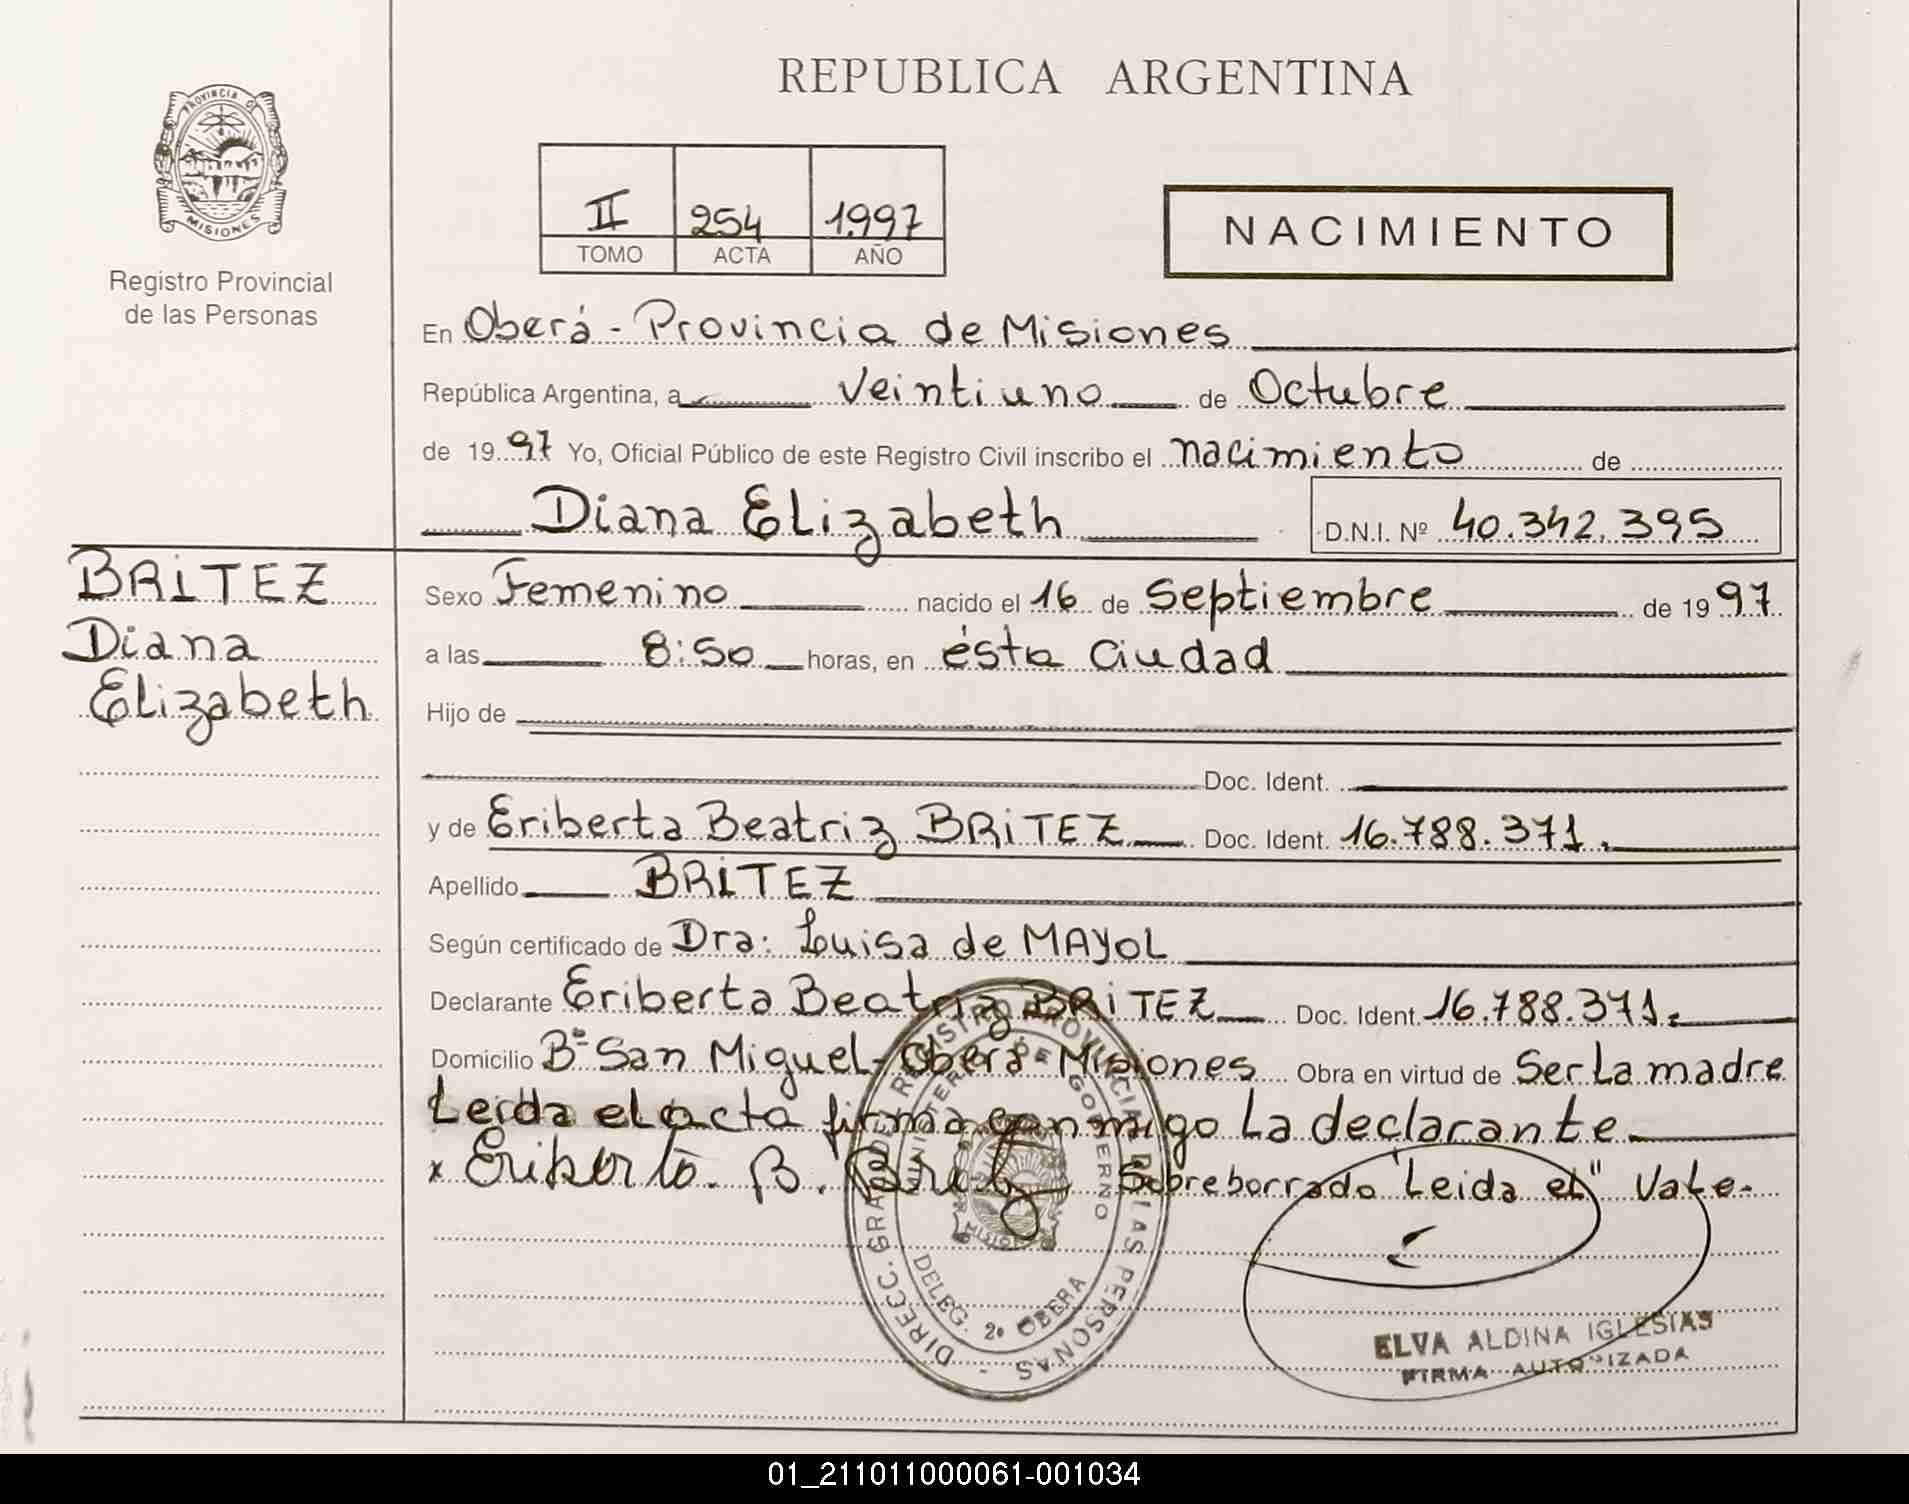 REPUBLICA ARGENTINA
PROVINCIA D
MISIONES
Registro Provincial
de las Personas
II 254 1.997
TOMO ACTA AÑO
NACIMIENTO
En Oberá - Provincia de Misiones
República Argentina, a veintiuno de Octubre
de 1997 Yo, Oficial Público de este Registro Civil inscribo el nacimiento de
Diana Elizabeth D.N.I. Nº 40.342.395
BRITEZ
Diana
Elizabeth
Sexo Femenino nacido el 16 de Septiembre de 1997
a las 8:50 horas, en ésta Ciudad
Hijo de
Doc. Ident.
y de Eriberta Beatriz BRITEZ Doc. Ident. 16.788.371.
Apellido BRITEZ
Según certificado de Dra: Luisa de MAYOL
Declarante Eriberta Beatriz BRITEZ Doc. Ident. 16.788.371.
Domicilio Bº San Miguel - Oberá - Misiones Obra en virtud de Ser La madre
Leida el acta firma conmigo La declarante
x Eriberta. B. Britez Sobreborrado "Leida el" Vale.
DIRECC. GRAL DEL REGISTRO PROVINCIAL DE LAS PERSONAS -
MINISTERIO DE GOBIERNO
DELEG. 2º OBERA
ELVA ALDINA IGLESIAS
FIRMA AUTORIZADA
01_211011000061-001034